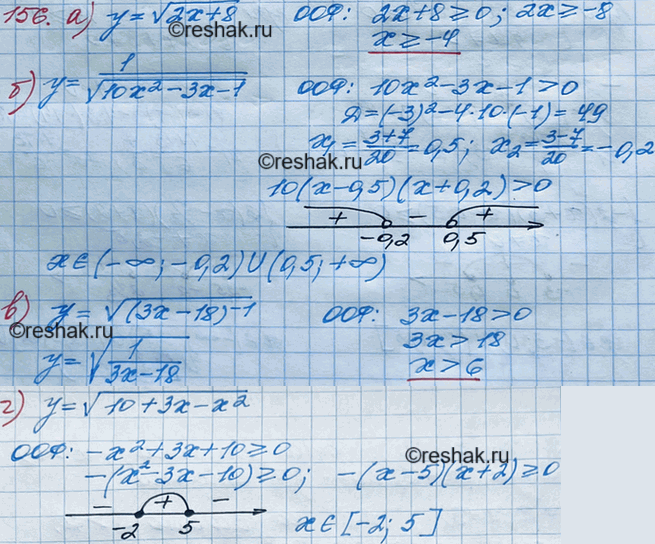 156. а) y = √(2x+8) ООФ: 2x+8 ≥ 0; 2x ≥ -8
©reshak.ru
x ≥ -4
б) y = 1/√(10x² - 3x - 1) ООФ: 10x² - 3x - 1 > 0
Д = (-3)² - 4·10·(-1) = 49
x₁ = (3+7)/20 = 0,5; x₂ = (3-7)/20 = -0,2
©reshak.ru
10(x-0,5)(x+0,2) > 0
+ - +
-0,2 0,5
x ∈ (-∞; -0,2) ∪ (0,5; +∞)
в) y = √((3x-18)⁻¹) ООФ: 3x-18 > 0
©reshak.ru
3x > 18
y = √(1/(3x-18)) x > 6
г) y = √(10+3x-x²)
ООФ: -x²+3x+10 ≥ 0
©reshak.ru
-(x²-3x-10) ≥ 0; -(x-5)(x+2) ≥ 0
- + -
-2 5
x ∈ [-2; 5]